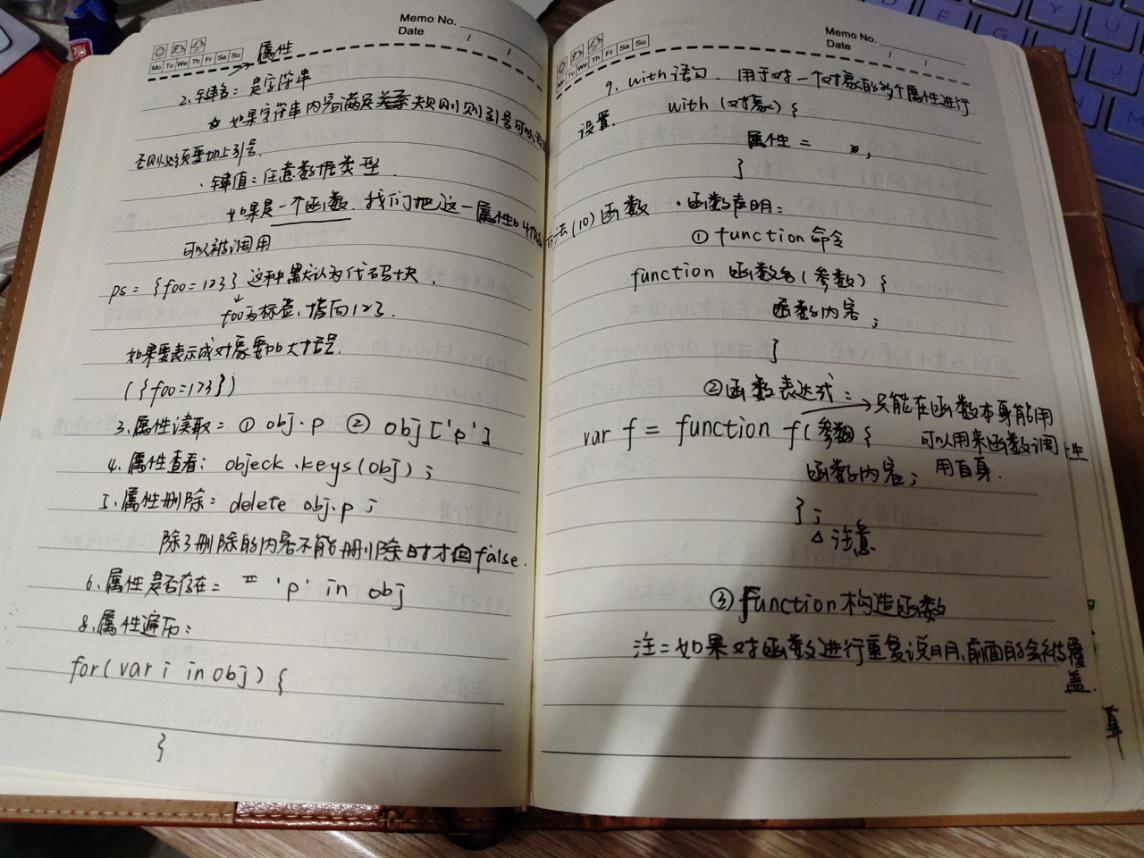 Memo No.
Date / /
Mo Tu We Th Fr Sa Su
属性
2.键名：是字符串
☆ 如果字符串内容满足规则则引号可以
否则必须要加上引号.
·键值：任意数据类型.
如果是一个函数，我们把这一属性
可以被调用
ps = {foo = 123} 这种默认为代码块,
foo为标签，指向123.
如果要表示成对象要加大括号.
({foo = 123})
3.属性读取 = ① obj.p ② obj['p']
4.属性查看: objeck.keys(obj);
5.属性删除: delete obj.p;
除了删除的内容不能删除时才回false.
6.属性是否存在 = 'p' in obj
8.属性遍历:
for(var i in obj) {
}
Memo No.
Date / /
Mo Tu We Th Fr Sa Su
9. with语句. 用于对一个对象的多个属性进行
设置. with (对象) {
属性 =
}
方法(10)函数 ·函数声明:
① function 命令
function 函数名 (参数) {
函数内容;
}
②函数表达式: 只能在函数本身能用
var f = function f(参数) { 可以用来函数调
函数内容; 用自身.
};
△注意
③ Function 构造函数
注=如果对函数进行重复说明,前面的会被覆
盖.